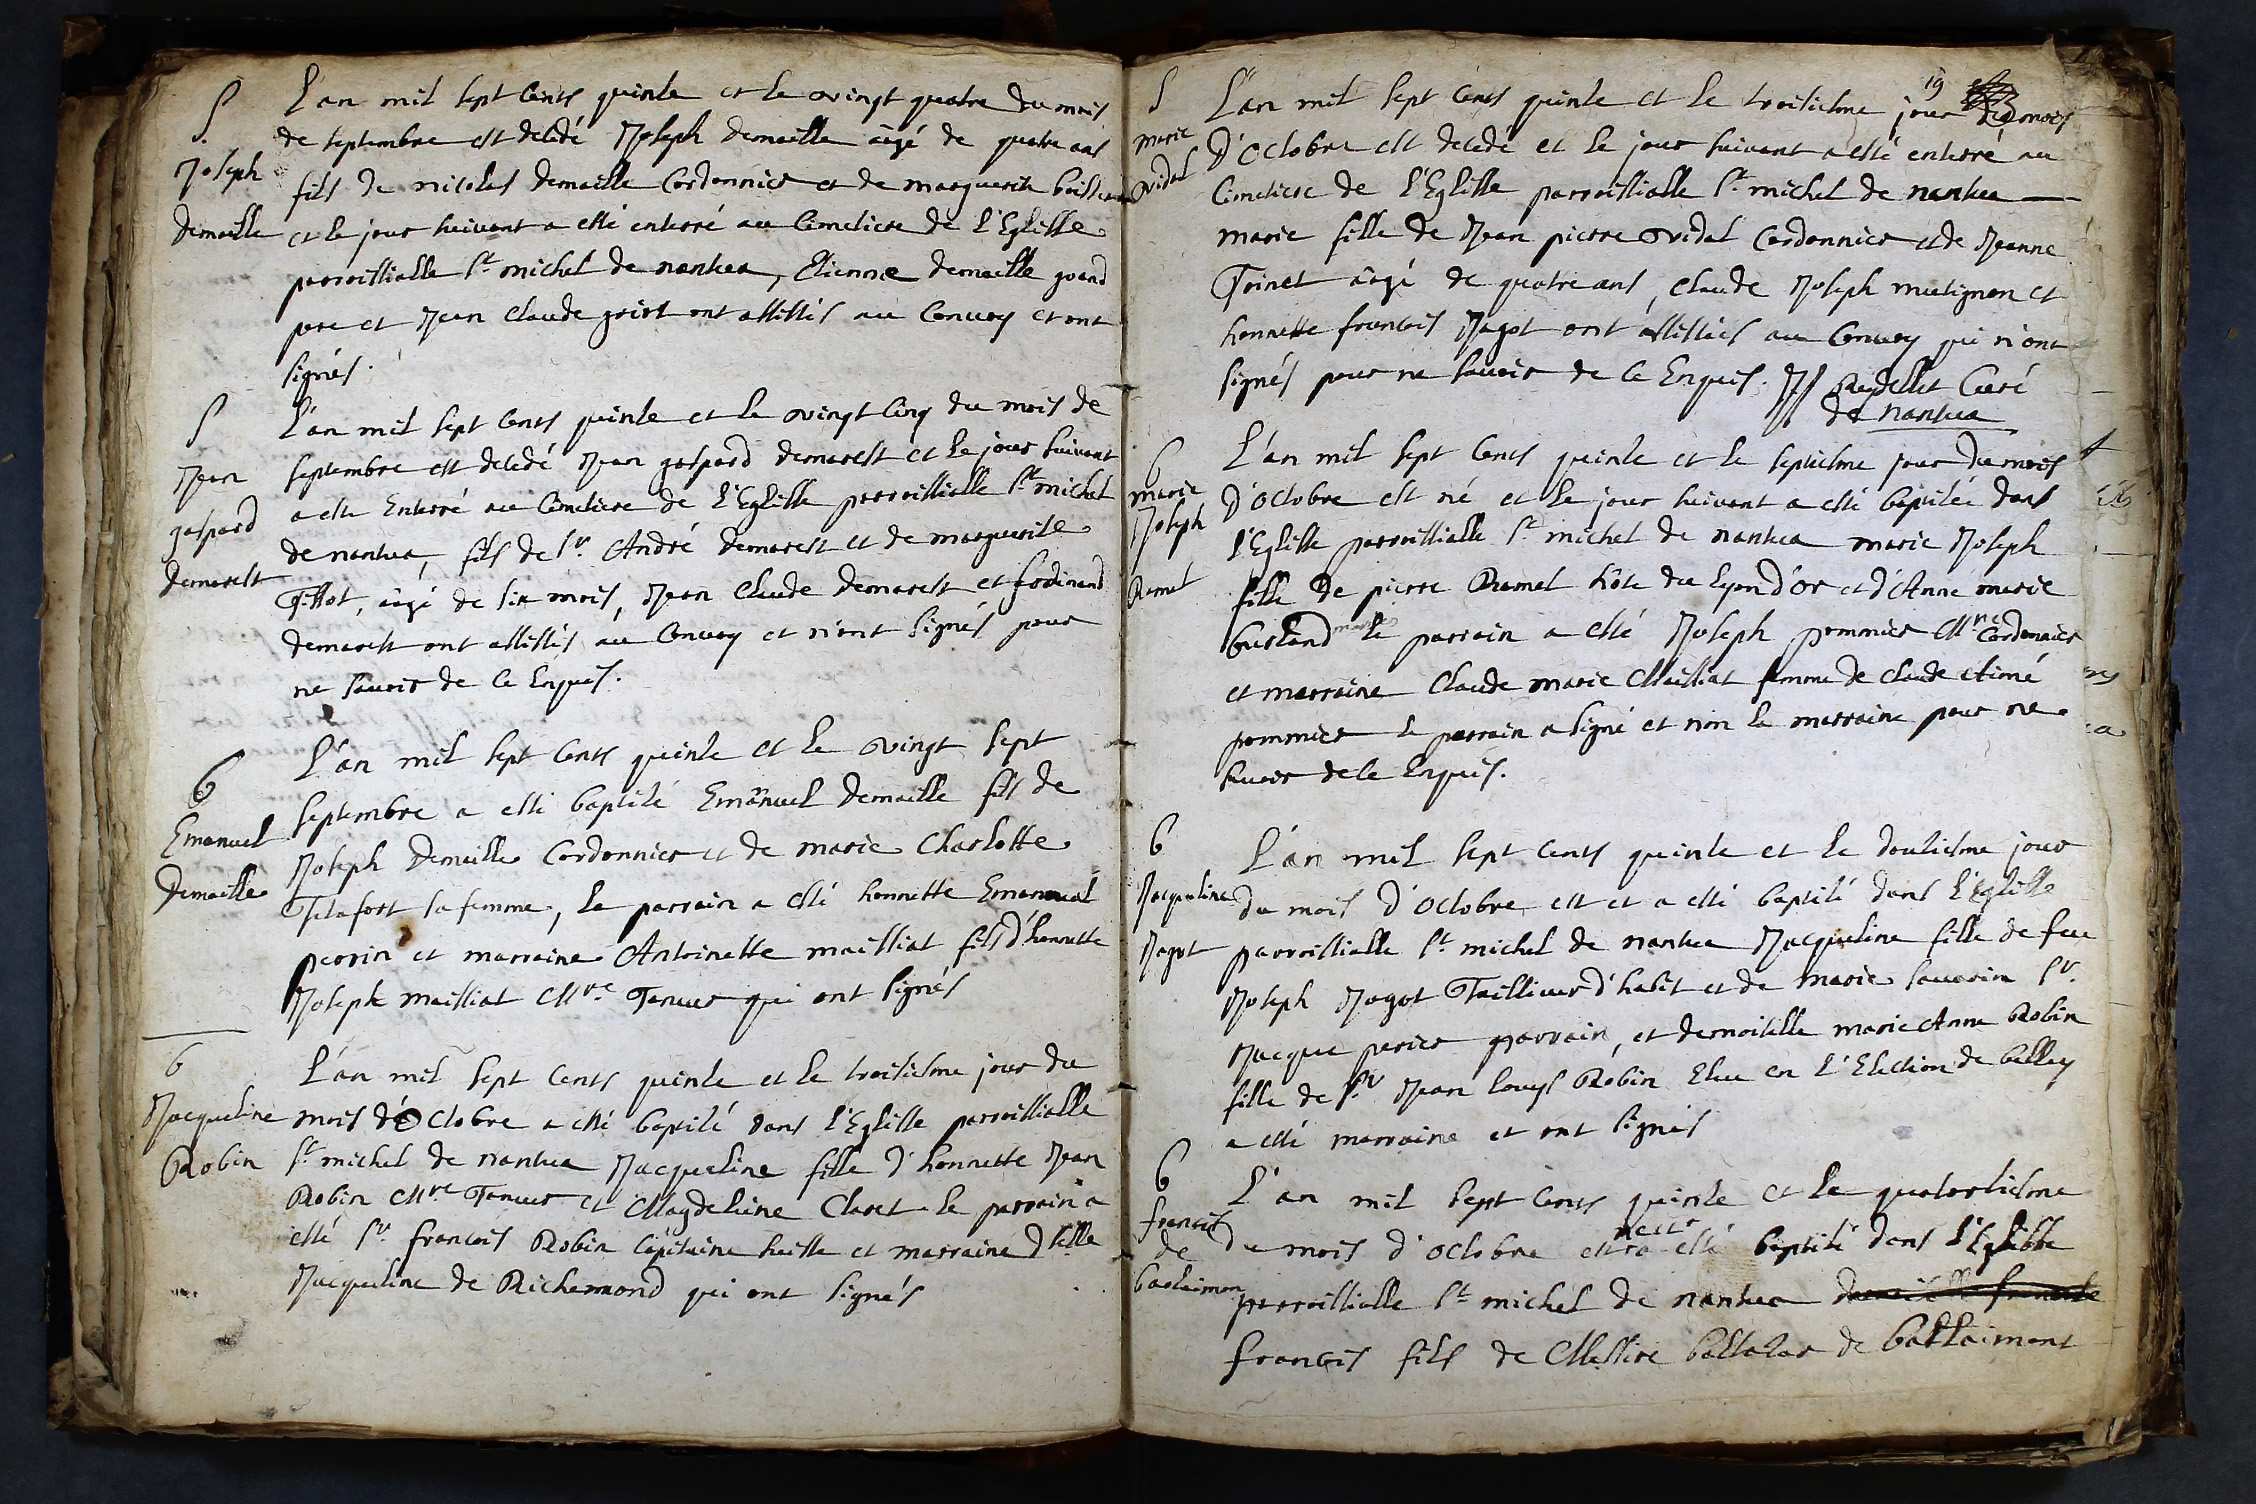 S
Joseph
demaille
L'an mil sept cents quinze et le vingt quatre du mois
de septembre est decedé Joseph demaille aigé de quatre ans
fils de nicolas demaille Cordonnier et de marguerite
et le jour suivant a esté enterré au Cimetiere de l'Eglisse
parroissialle St michel de nantua, Etienne demaille grand
pere et Jean Claude ont assistés au Convoy et ont
signés.
S
Jean
gaspard
demarest
L'an mil sept cents quinze et le vingt cinq du mois de
septembre est decedé Jean gaspard demarest et le jour suivant
a esté Enterré au Cimetiere de l'Eglisse parroissialle St michel
de nantua, fils de Sr. André demarest et de marguerite
Tissot, aigé de six mois, Jean Claude demarest et ferdinand
demarest ont assistés au Convoy et n'ont signés pour
ne sauoir de ce Enquis.
6
Emanuel
demaille
L'an mil sept cents quinze et le vingt sept
septembre a esté baptisé Emanuel demaille fils de
Joseph demaille Cordonnier et de marie Charlotte
Telafort sa femme, le parrain a esté honnette Emanuel
perrin et marraine Antoinette mailliat fils d'honnette
Joseph mailliat Mre Taneur qui ont signés
6
Jacqueline
Robin
L'an mil sept cents quinze et le troisiesme jour du
mois d'Octobre a esté baptisé dans l'Eglisse parroissialle
St michel de nantua Jacqueline fille d'honnette Jean
Robin Mre Taneur et Magdeleine Claret le parrain a
esté Sr. francois Robin Capitaine suisse et marraine Dlle
Jacqueline de Richemond qui ont signés
19
S
marie
vidal
L'an mil sept cents quinze et le troisiesme jour du mois
d'Octobre est decedé et le jour suivant a esté enterré au
Cimetiere de l'Eglisse parroissialle St michel de nantua
marie fille de Jean pierre vidal Cordonnier et de Jeanne
Trinet aigé de quatre ans, Claude Joseph mutignon et
honnette francois Jagot ont assistés au Convoy qui n'ont
signés pour ne sauoir de ce Enquis. JJ Reydellet Curé
de nantua
6
marie
Joseph
Ramel
L'an mil sept cents quinze et le septiesme jour du mois
d'Octobre est né et le jour suivant a esté baptisée dans
l'Eglisse parroissialle St michel de nantua marie Joseph
fille de pierre Ramel hôte du lyon d'or et d'Anne marie
le parrain a esté Joseph pommier Mre Cordonnier
et marraine Claude marie Mailliat femme de Claude Aimé
pommier le parrain a signé et non la marraine pour ne
sauoir de ce Enquis.
6
Jacqueline
Jagot
L'an mil sept cents quinze et le douziesme jour
du mois d'Octobre est et a esté baptisé dans l'Eglisse
parroissialle St michel de nantua Jacqueline fille de feu
Joseph Jagot Taillieur d'habit et de marie sauarin Sr.
Jacque perier parrain, et demoiselle marie Anne Robin
fille de Sr Jean louys Robin Elue en l'Election de belley
a esté marraine et ont signés
6
francois
de
L'an mil sept cents quinze et le quatorziesme
du mois d'Octobre est a esté baptisé dans l'Eglisse
parroissialle St michel de nantua
francois fils de Messire baltazar de